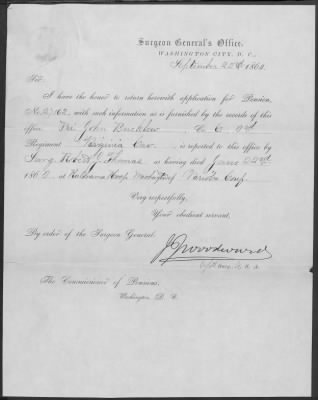 Surgeon General's Office,
WASHINGTON CITY, D. C.,
September 22d 186
Sir:
I have the honor to return herewith application for Pension,
No. 27162, with such information as is furnished by the records of this
office. Pvt John Co. C.
Regiment Virginia Cav. is reported to this office by
Surg. Thomas as having died June 22nd
186 , at Hosp.
Very respectfully,
Your obedient servant,
By order of the Surgeon General:
J J Woodward
The Commissioner of Pensions,
Washington, D. C.